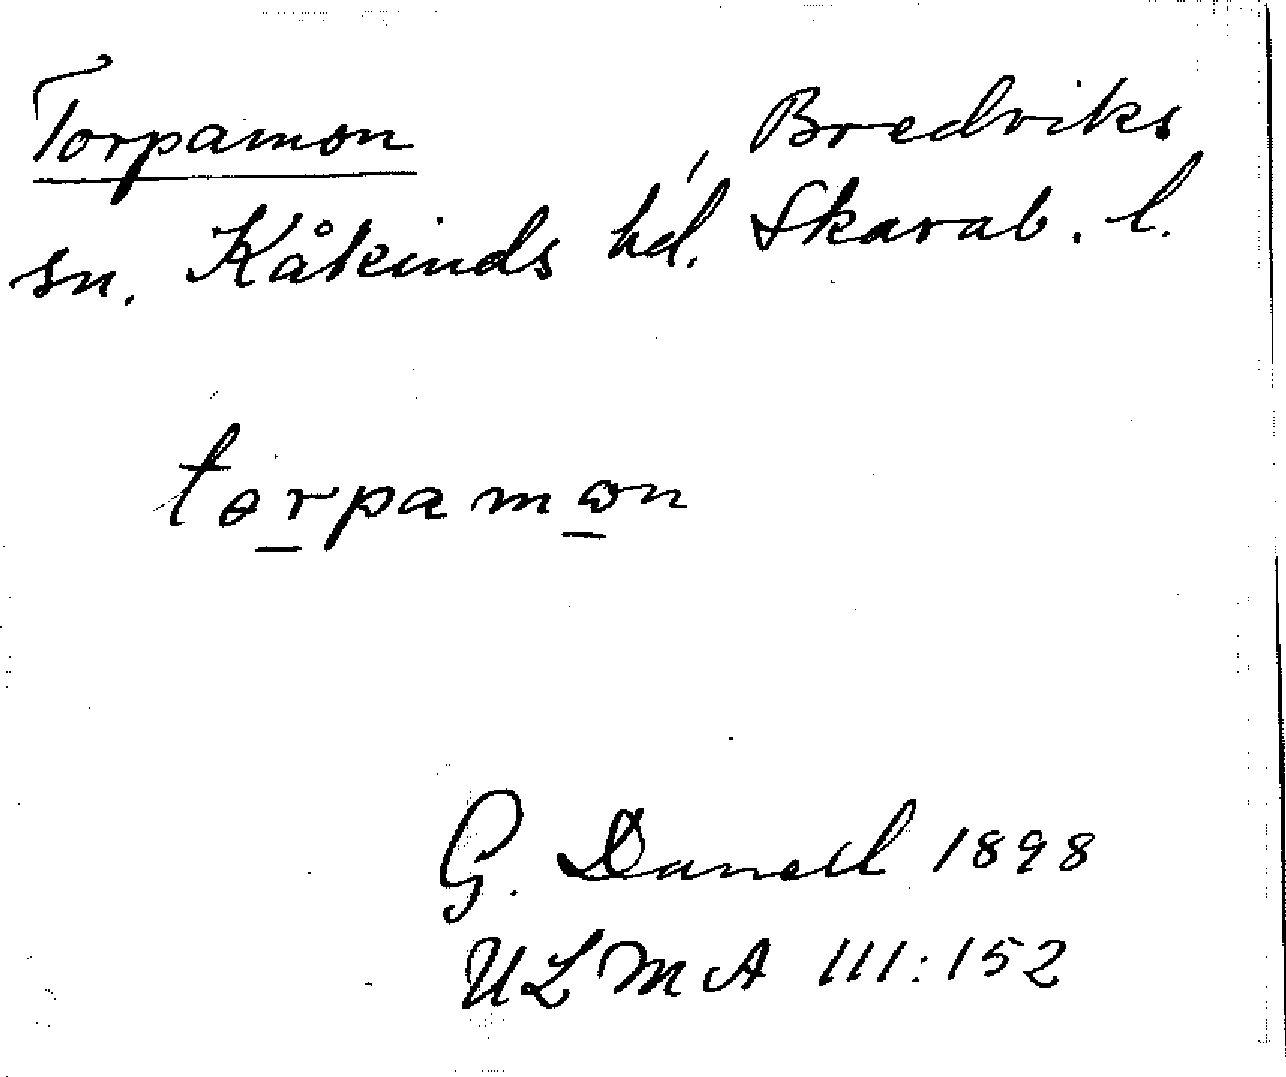 Torpamon , Bredviks
sn. Kåkinds hd. Skarab. l.
tɵrpamωn
G. Danell 1898
ULMA 111:152